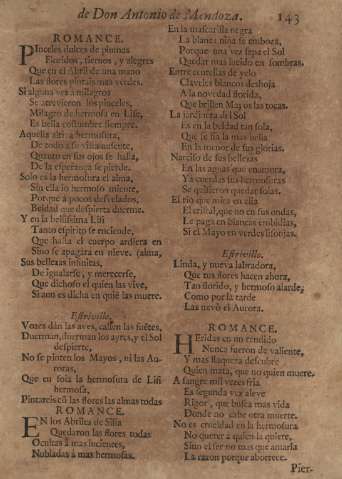 de Don Antonio de Mendoza. 143
ROMANCE.
Pinceles dulces de plumas
Floridos, tiernos, y alegres
Que en el Abril de una mano
Las flores pintais mas verdes.
Si alguna vez a milagros
Se atrevieron los pinceles,
Milagro de hermosa en Lisi,
Es bella costumbre siempre.
Aquella altiva hermosura,
De todo a su vista ausente,
Quanto en sus ojos se halla,
De la esperança se pierde.
Solo es la hermosura el alma,
Sin ella lo hermoso miente,
Porque a pocos desvelados,
Beldad que despierta duerme.
Y en la bellissima Lisi
Tanto espiritu se enciende,
Que hasta el cuerpo ardiera en
Sino se apagàra en nieve. (alma,
Sus bellezas infinitas,
De igualarse, y merecerse,
Que dichoso el quien las vive,
Si aun es dicha en quiē las muere.
Estrivillo.
Vozes dàn las aves, callen las fuētes,
Duerman, duerman los ayres, y el Sol
despierte,
No se pinten los Mayos, ni las Auroras,
Que en sola la hermosura de Lisi
hermosa,
Pintareis cō las flores las almas todas
ROMANCE.
EN los Abriles de Silia
Quedaron las flores todas
Ocultas à mas lucientes,
Nubladas à mas hermosas.
En la mascarilla negra
La blanca niña se emboça,
Porque una vez sepa el Sol
Quedar mas lucido en sombras.
Entre centellas de yelo
Claveles blancos deshoja
A la novedad florida,
Que brillen Mayos las tocas.
La jardinera del Sol
Es en la beldad tan sola,
Que se fia la mas bella
En la menor de sus glorias.
Narciso de sus bellezas
En las aguas que enamora,
Ya cuerdas sus hermosuras
Se quisieron quedar solas.
El rio que mira en ella
El cristal, que no en sus ondas,
Le paga en blancas embidias,
Si el Mayo en verdes lisonjas.
Estrivillo.
Linda, y nueva labradora,
Que tus flores hacen ahora,
Tan florido, y hermoso alarde,
Como por la tarde
Las nevò el Aurora.
ROMANCE.
HEridas en un rendido
Nunca fueron de valiente,
Y mas flaqueza descubre
Quien mata, que no quien muere.
A sangre mil vezes fria
Es segunda vez aleve
Rigor, que busca mas vida
Donde no cabe otra muerte.
No es crueldad en la hermosura
No querer a quien la quiere,
Sino el ser no mas que amarla
La razon porque aborrece.
Pier-